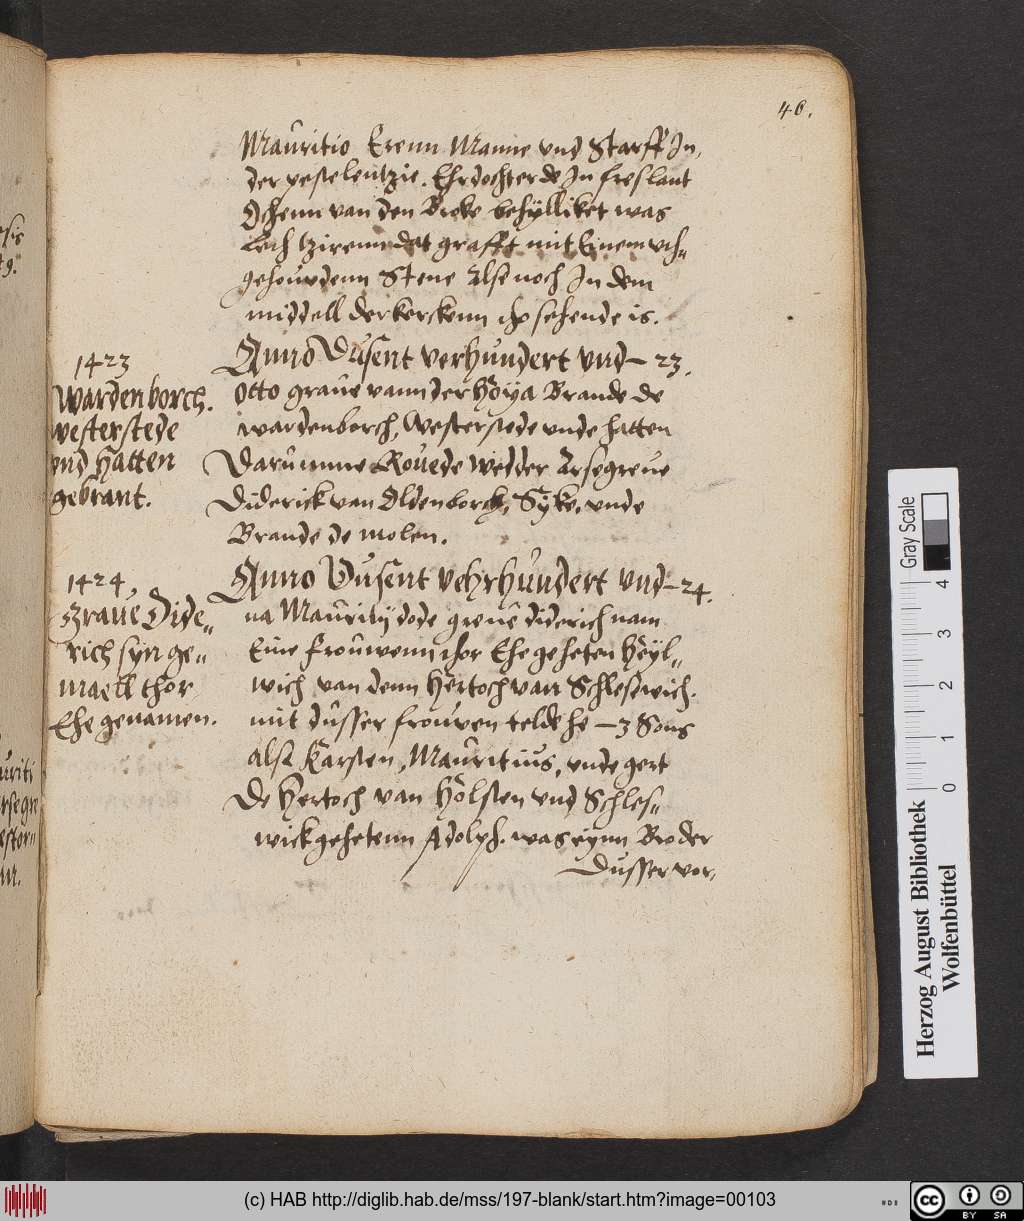 46.
Mauritio Erenn Manne vnd Starff In,
der pestelentzie. Ehr dochter de In freslant
Ochenn van den Broke behylliket was
Lech tzirenn dat grafft mit Einem vth-
gehouwdenn Stene Alse noch In dem
middell der kerckenn tho sehende is.
1423
Wardenborch.
westerstede
vnd Hatten
gebrant.
Anno Dusent verhundert vnd - 23.
Otto graue vann der Hoya Brande de
wardenborch, Westerstede vnde hatten
Darumme Rouede wedder Arsegreue
Diderick van Oldenborch, Syke, vnde
Brande de molen.
1424,
Graue Dide-
rich syn ge-
maell thor
Ehe genamen.
Anno Dusent vehrhundert vnd - 24.
na Mauritij dode greue diderich nam
Eine frouwenn thor Ehe geheten Heyl-
wich van denn Hertoch van Schleswich.
mit dusser frouwen telde he - 3 Sons
alse Karsten, Mauritius, vnde gert
De Hertoch van Holsten vnd Schles-
wick gehetenn Adolph. was eynn Broder
Dusser vor,
Gray Scale
0 1 2 3 4
Herzog August Bibliothek
Wolfenbüttel
(c) HAB http://diglib.hab.de/mss/197-blank/start.htm?image=00103
cc BY SA